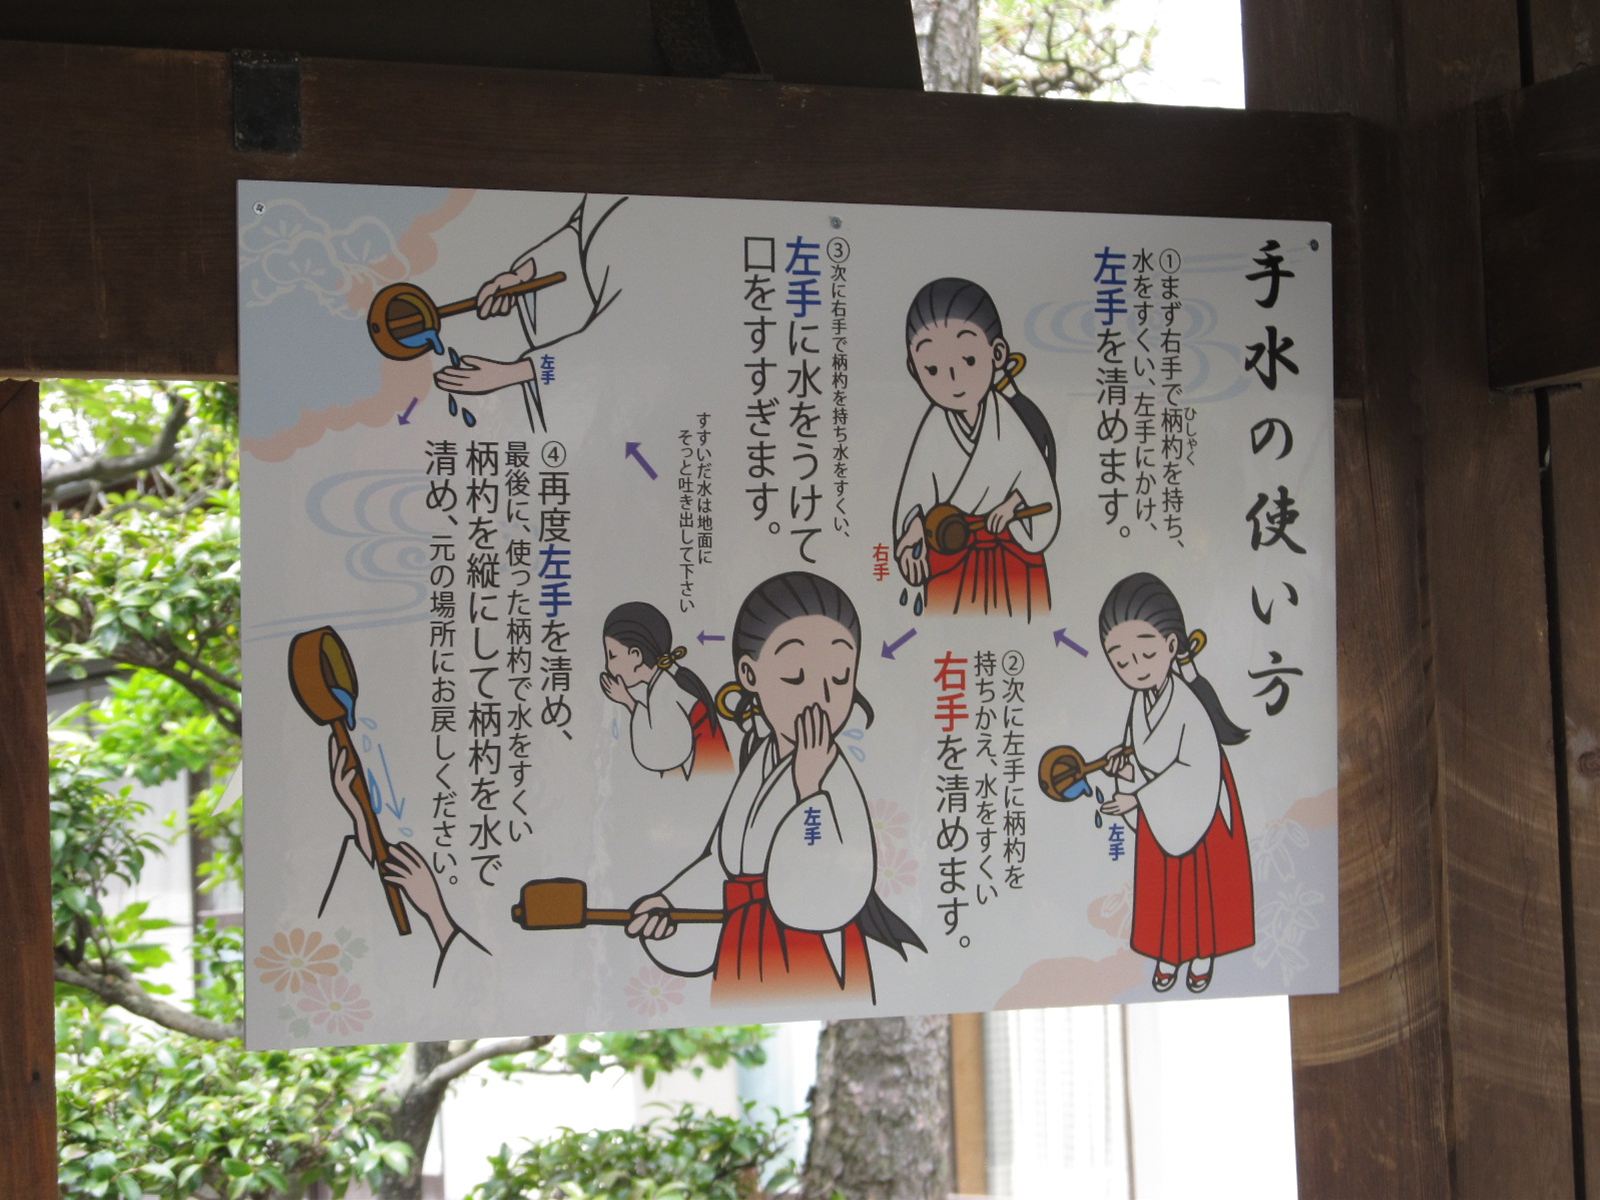 手水の使い方
①まず右手で柄杓を持ち、
ひしゃく
水をすくい、左手にかけ、
左手を清めます。
左手
②次に左手に柄杓を
持ちかえ、水をすくい
右手を清めます。
右手
③次に右手で柄杓を持ち水をすくい、
左手に水をうけて
口をすすぎます。
左手
すすいだ水は地面に
そっと吐き出して下さい
④再度左手を清め、
最後に、使った柄杓で水をすくい
柄杓を縦にして柄杓を水で
清め、元の場所にお戻しください。
左手